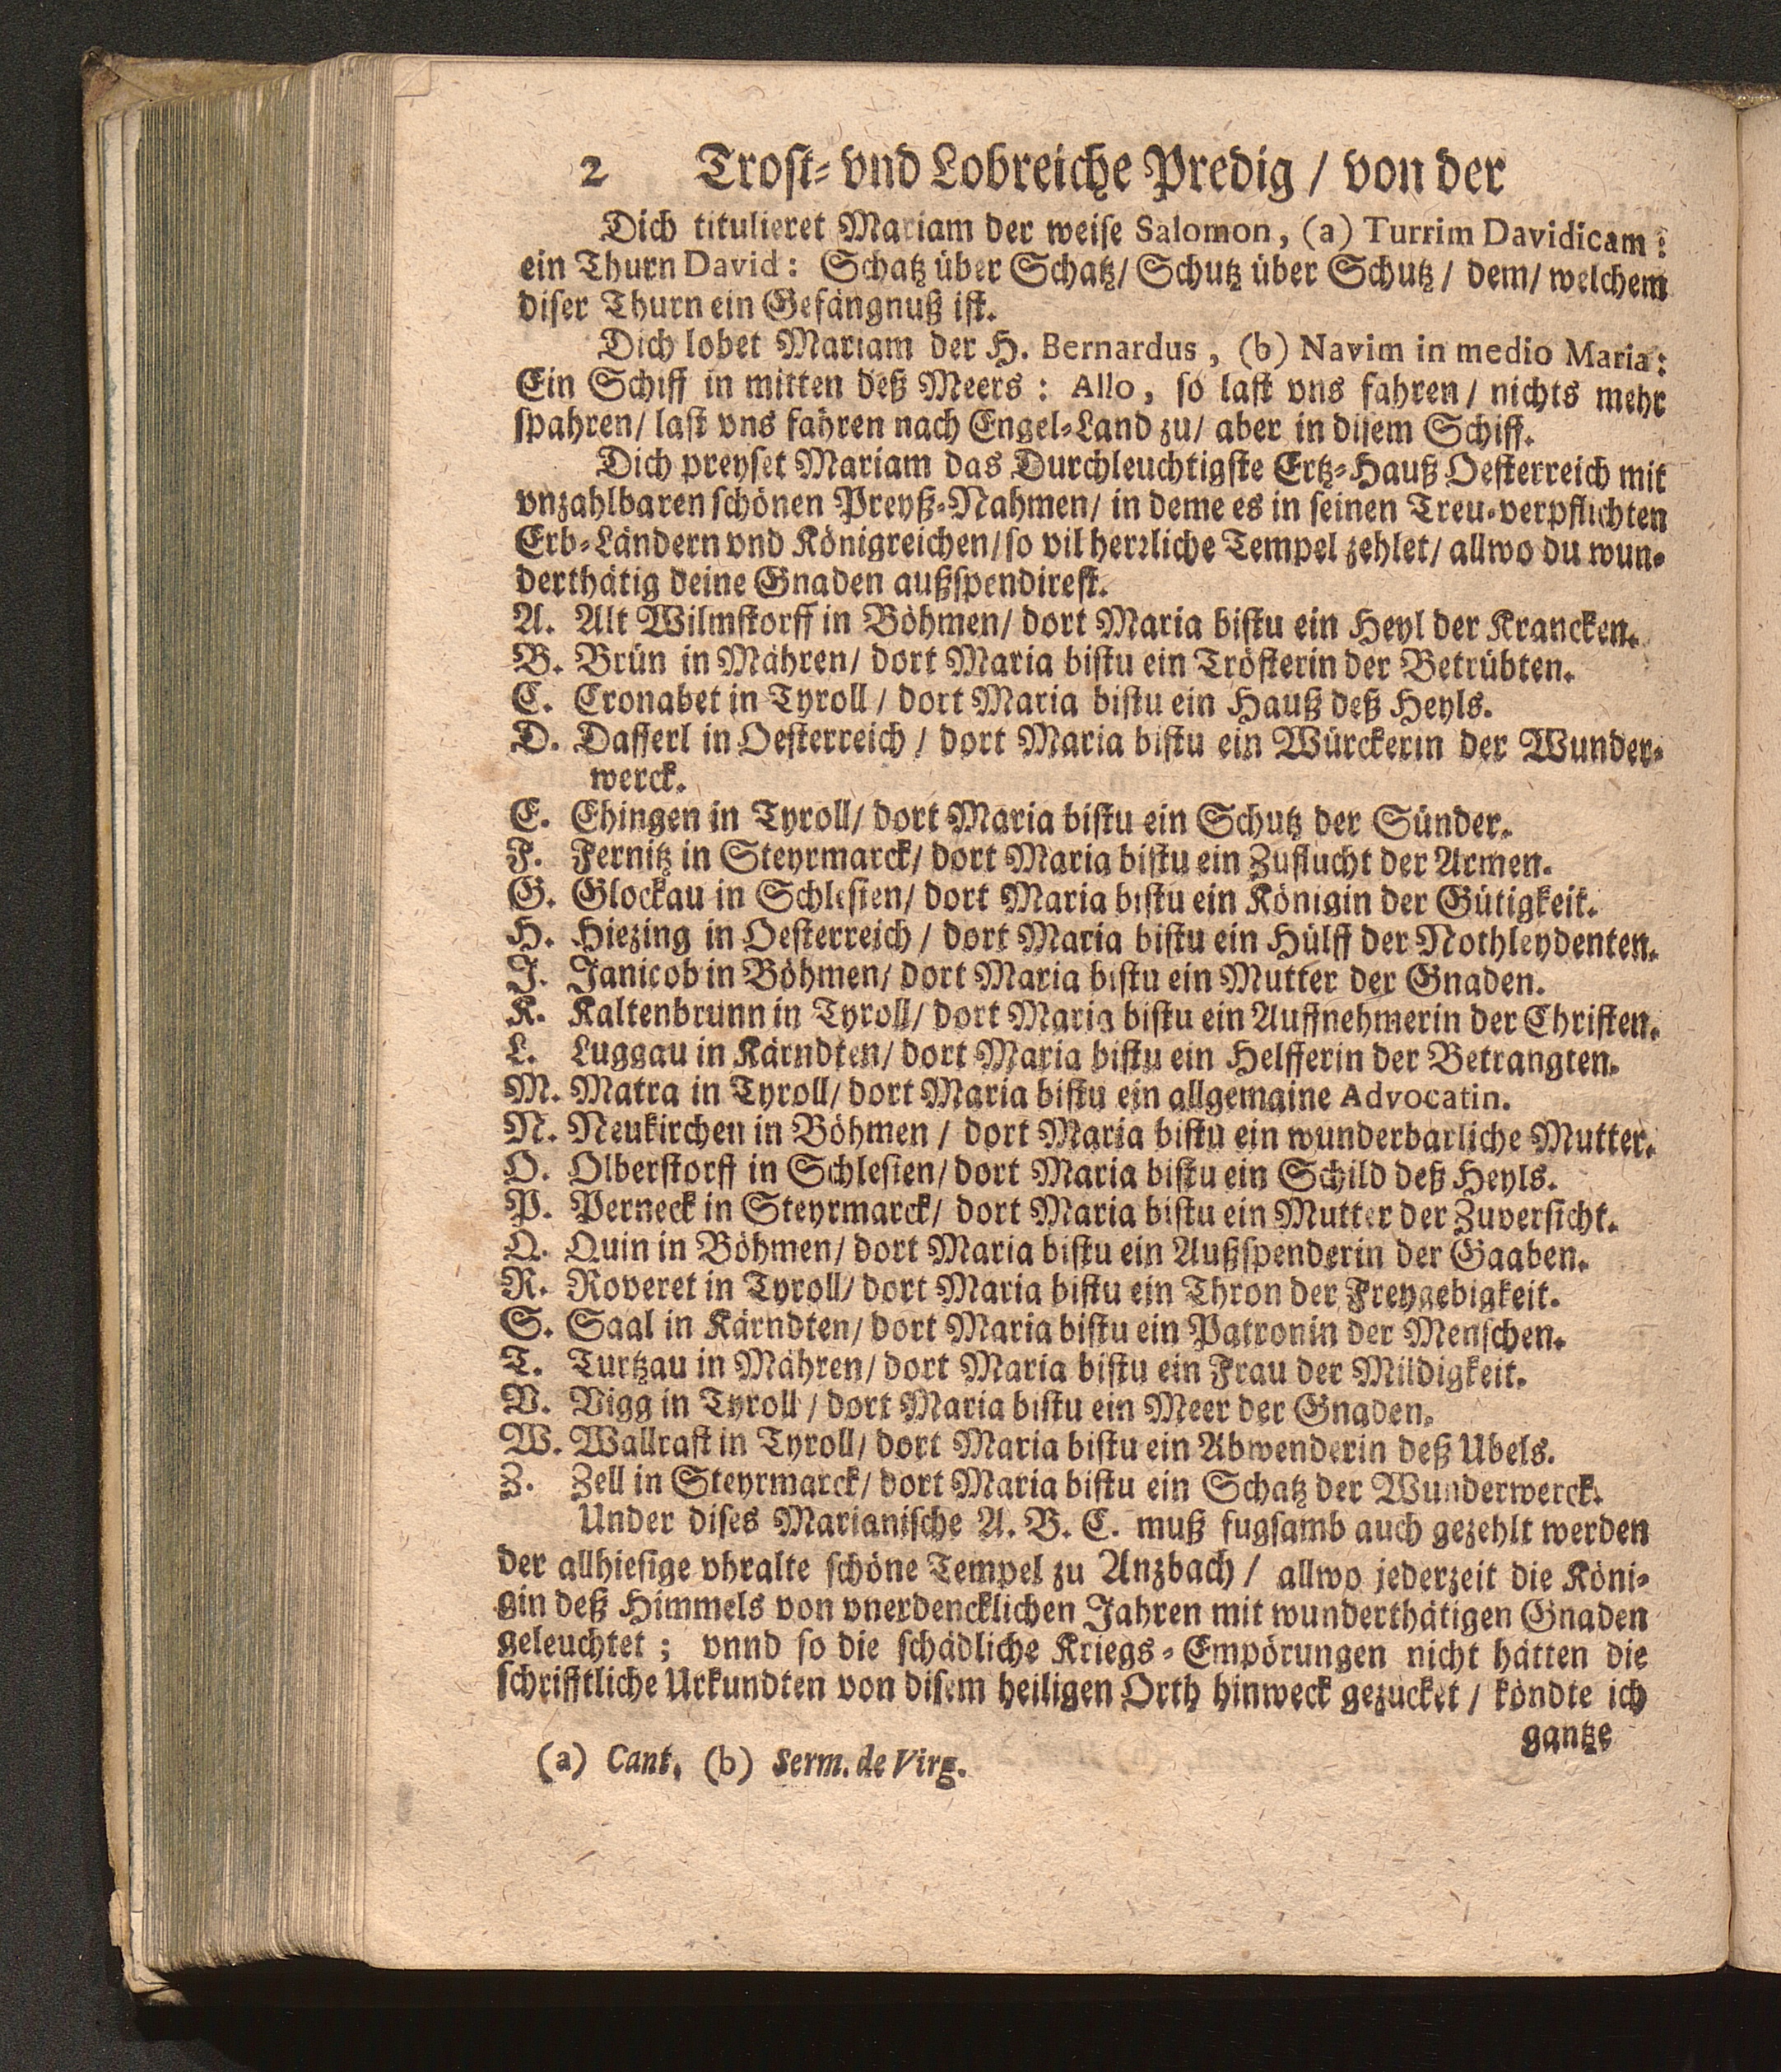 2 Trost- vnd Lobreiche Predig / von der
Dich titulieret Mariam der weise Salomon, (a) Turrim Davidicam:
ein Thurn David: Schatz über Schatz/ Schutz über Schutz / dem/ welchem
diser Thurn ein Gefängnuß ist.
Dich lobet Mariam der H. Bernardus, (b) Navim in medio Maria:
Ein Schiff in mitten deß Meers: Allo, so last vns fahren / nichts mehr
spahren/ last vns fahren nach Engel-Land zu/ aber in disem Schiff.
Dich preyset Mariam das Durchleuchtigste Ertz-Hauß Oesterreich mit
vnzahlbaren schönen Preyß-Nahmen/ in deme es in seinen Treu-verpflichten
Erb-Ländern vnd Königreichen/ so vil herrliche Tempel zehlet/ allwo du wun-
derthätig deine Gnaden außspendirest.
A. Alt Wilmstorff in Böhmen/ dort Maria bistu ein Heyl der Krancken.
B. Brün in Mähren/ dort Maria bistu ein Trösterin der Betrübten.
C. Cronabet in Tyroll / dort Maria bistu ein Hauß deß Heyls.
D. Dafferl in Oesterreich / dort Maria bistu ein Würckerin der Wunder-
werck.
E. Ehingen in Tyroll/ dort Maria bistu ein Schutz der Sünder.
F. Fernitz in Steyrmarck/ dort Maria bistu ein Zuflucht der Armen.
G. Glockau in Schlesien/ dort Maria bistu ein Königin der Gütigkeit.
H. Hiezing in Oesterreich / dort Maria bistu ein Hülff der Nothleydenten.
J. Janicob in Böhmen/ dort Maria bistu ein Mutter der Gnaden.
K. Kaltenbrunn in Tyroll/ dort Maria bistu ein Auffnehmerin der Christen.
L. Luggau in Kärndten/ dort Maria bistu ein Helfferin der Betrangten.
M. Matra in Tyroll/ dort Maria bistu ein allgemaine Advocatin.
N. Neukirchen in Böhmen / dort Maria bistu ein wunderbarliche Mutter.
O. Olberstorff in Schlesien/ dort Maria bistu ein Schild deß Heyls.
P. Perneck in Steyrmarck/ dort Maria bistu ein Mutter der Zuversicht.
Q. Quin in Böhmen/ dort Maria bistu ein Außspenderin der Gaaben.
R. Roveret in Tyroll/ dort Maria bistu ein Thron der Freygebigkeit.
S. Saal in Kärndten/ dort Maria bistu ein Patronin der Menschen.
T. Turtzau in Mähren/ dort Maria bistu ein Frau der Mildigkeit.
V. Vigg in Tyroll / dort Maria bistu ein Meer der Gnaden.
W. Wallrast in Tyroll/ dort Maria bistu ein Abwenderin deß Ubels.
Z. Zell in Steyrmarck/ dort Maria bistu ein Schatz der Wunderwerck.
Under dises Marianische A. B. C. muß fugsamb auch gezehlt werden
der allhiesige vhralte schöne Tempel zu Anzbach / allwo jederzeit die Köni-
gin deß Himmels von vnerdencklichen Jahren mit wunderthätigen Gnaden
geleuchtet; vnnd so die schädliche Kriegs-Empörungen nicht hätten die
schrifftliche Urkundten von disem heiligen Orth hinweck gezucket / köndte ich
gantze
(a) Cant. (b) Serm. de Virg.